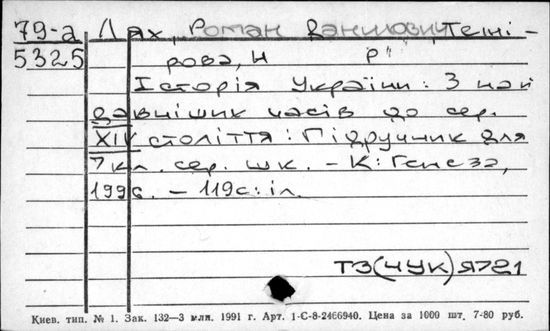 79-а Лях, Роман Данилович, Темі-
5325 рова, Н
Історія України: З най
давніших часів до сер.
XIV століття: Підручник для
7 кл. сер. шк. – К: Генеза,
1996. – 119с: іл.
Т3(4УК)Я721
Киев. тип. № 1. Зак. 132—3 млн. 1991 г. Арт. 1-С-8-2466940. Цена за 1000 шт. 7-80 руб.